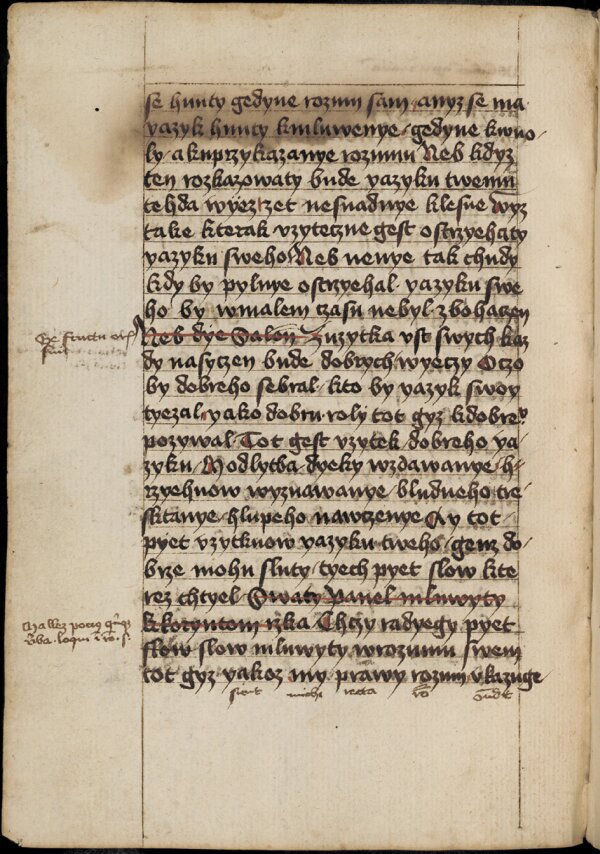 se hunty gedyne rozum sam anyz se ma
yazyk hunty kmluwenye gedyne kwuo
ly a kuprzykazanye rozumu Neb kdyz
ten rozkazowaty bude yazyku twemu
tehda wyezrzet nesnadnye klesne Wyz
take kterak vzyteczne gest ostrzyehaty
yazyku sweho Neb nenye tak chudy
kdy by pylnye ostrzyehal yazyku swe
ho by wmalem czasu nebyl zbohaczen
Neb dye Salon Zuzytka vst swych kaz
De fructu oris
sui
dy nasyczen bude dobrych wyeczy Oczo
by dobreho sebral kto by yazyk swoy
tyezal yako dobru roly tot gyz kdobre
pozywal Tot gest vzytek dobreho ya
zyku Modlytba dyeky wzdawanye h
rzyehuow wyznawanye bludneho tre
sktanye hlupeho nawczenye Ay tot
pyet vzytkuow yazyku tweho genz do
brze mohu sluty tyech pyet slow kte
rez chtyel Swaty Pawel mluwyty
kkoryntom rzka Chczy radyegy pyet
verba loqui
slow slow mluwyty wrozumu swem
tot gyz yakoz my prawy rozum vkazuge
michi recta